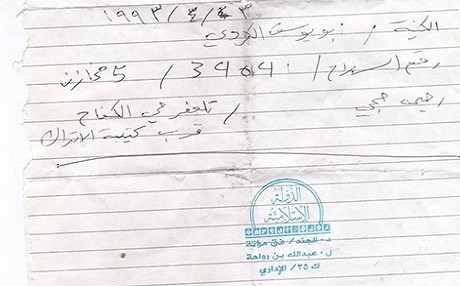 ١٩٩٣/٤/٢٣
الكنية / ابو يوسف الكردي
رقم السلاح / 39541 / 5 مخازن
حجي / تلعفر حي الكفاح
قرب كتيبة الاتراك
الدولة
الإسلامية
د. الجند / فق مؤتة
ل. عبدالله بن رواحة
ك ٣٥ / الإداري